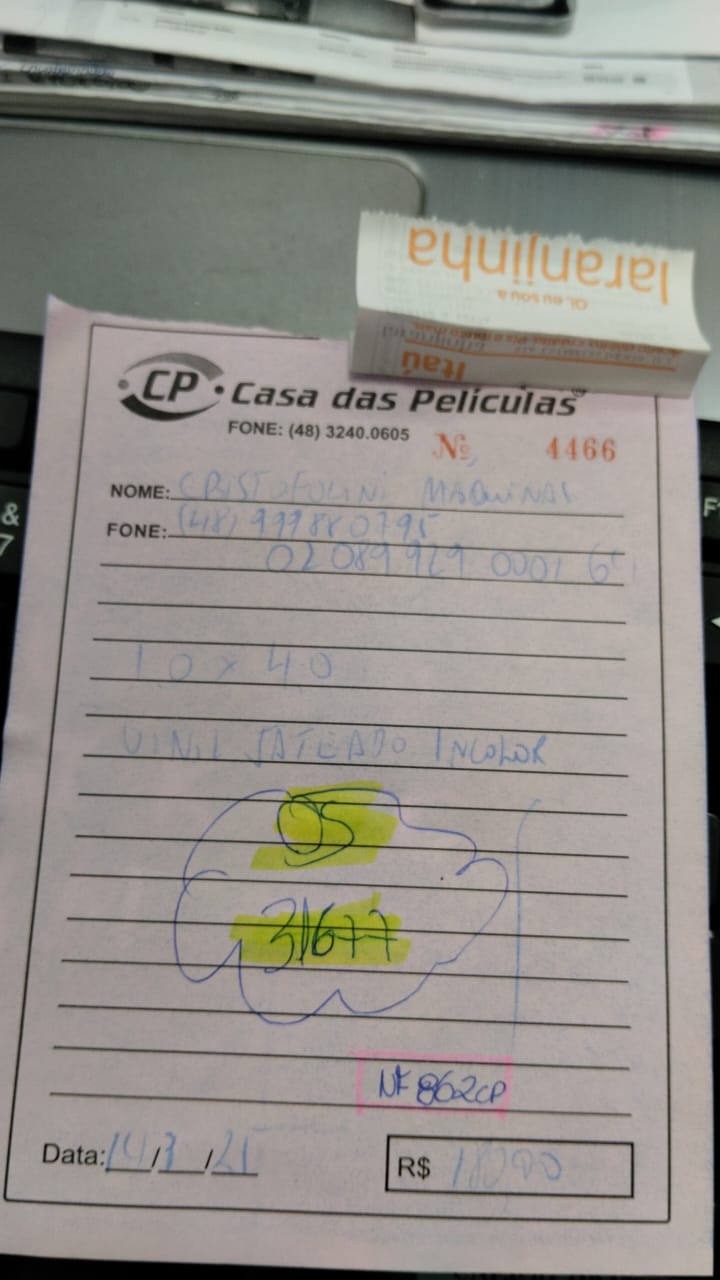 laranjinha
Oi, eu sou a
Itaú
CP Casa das Películas
FONE: (48) 3240.0605
Nº 4466
NOME: CRISTOFOLINI MAQUINAS
FONE: (48) 999880795
02 089 929 0001
10 x 40
VINIL JATEADO INCOLOR
OS
31677
NF 862CP
Data: 14/3/
R$